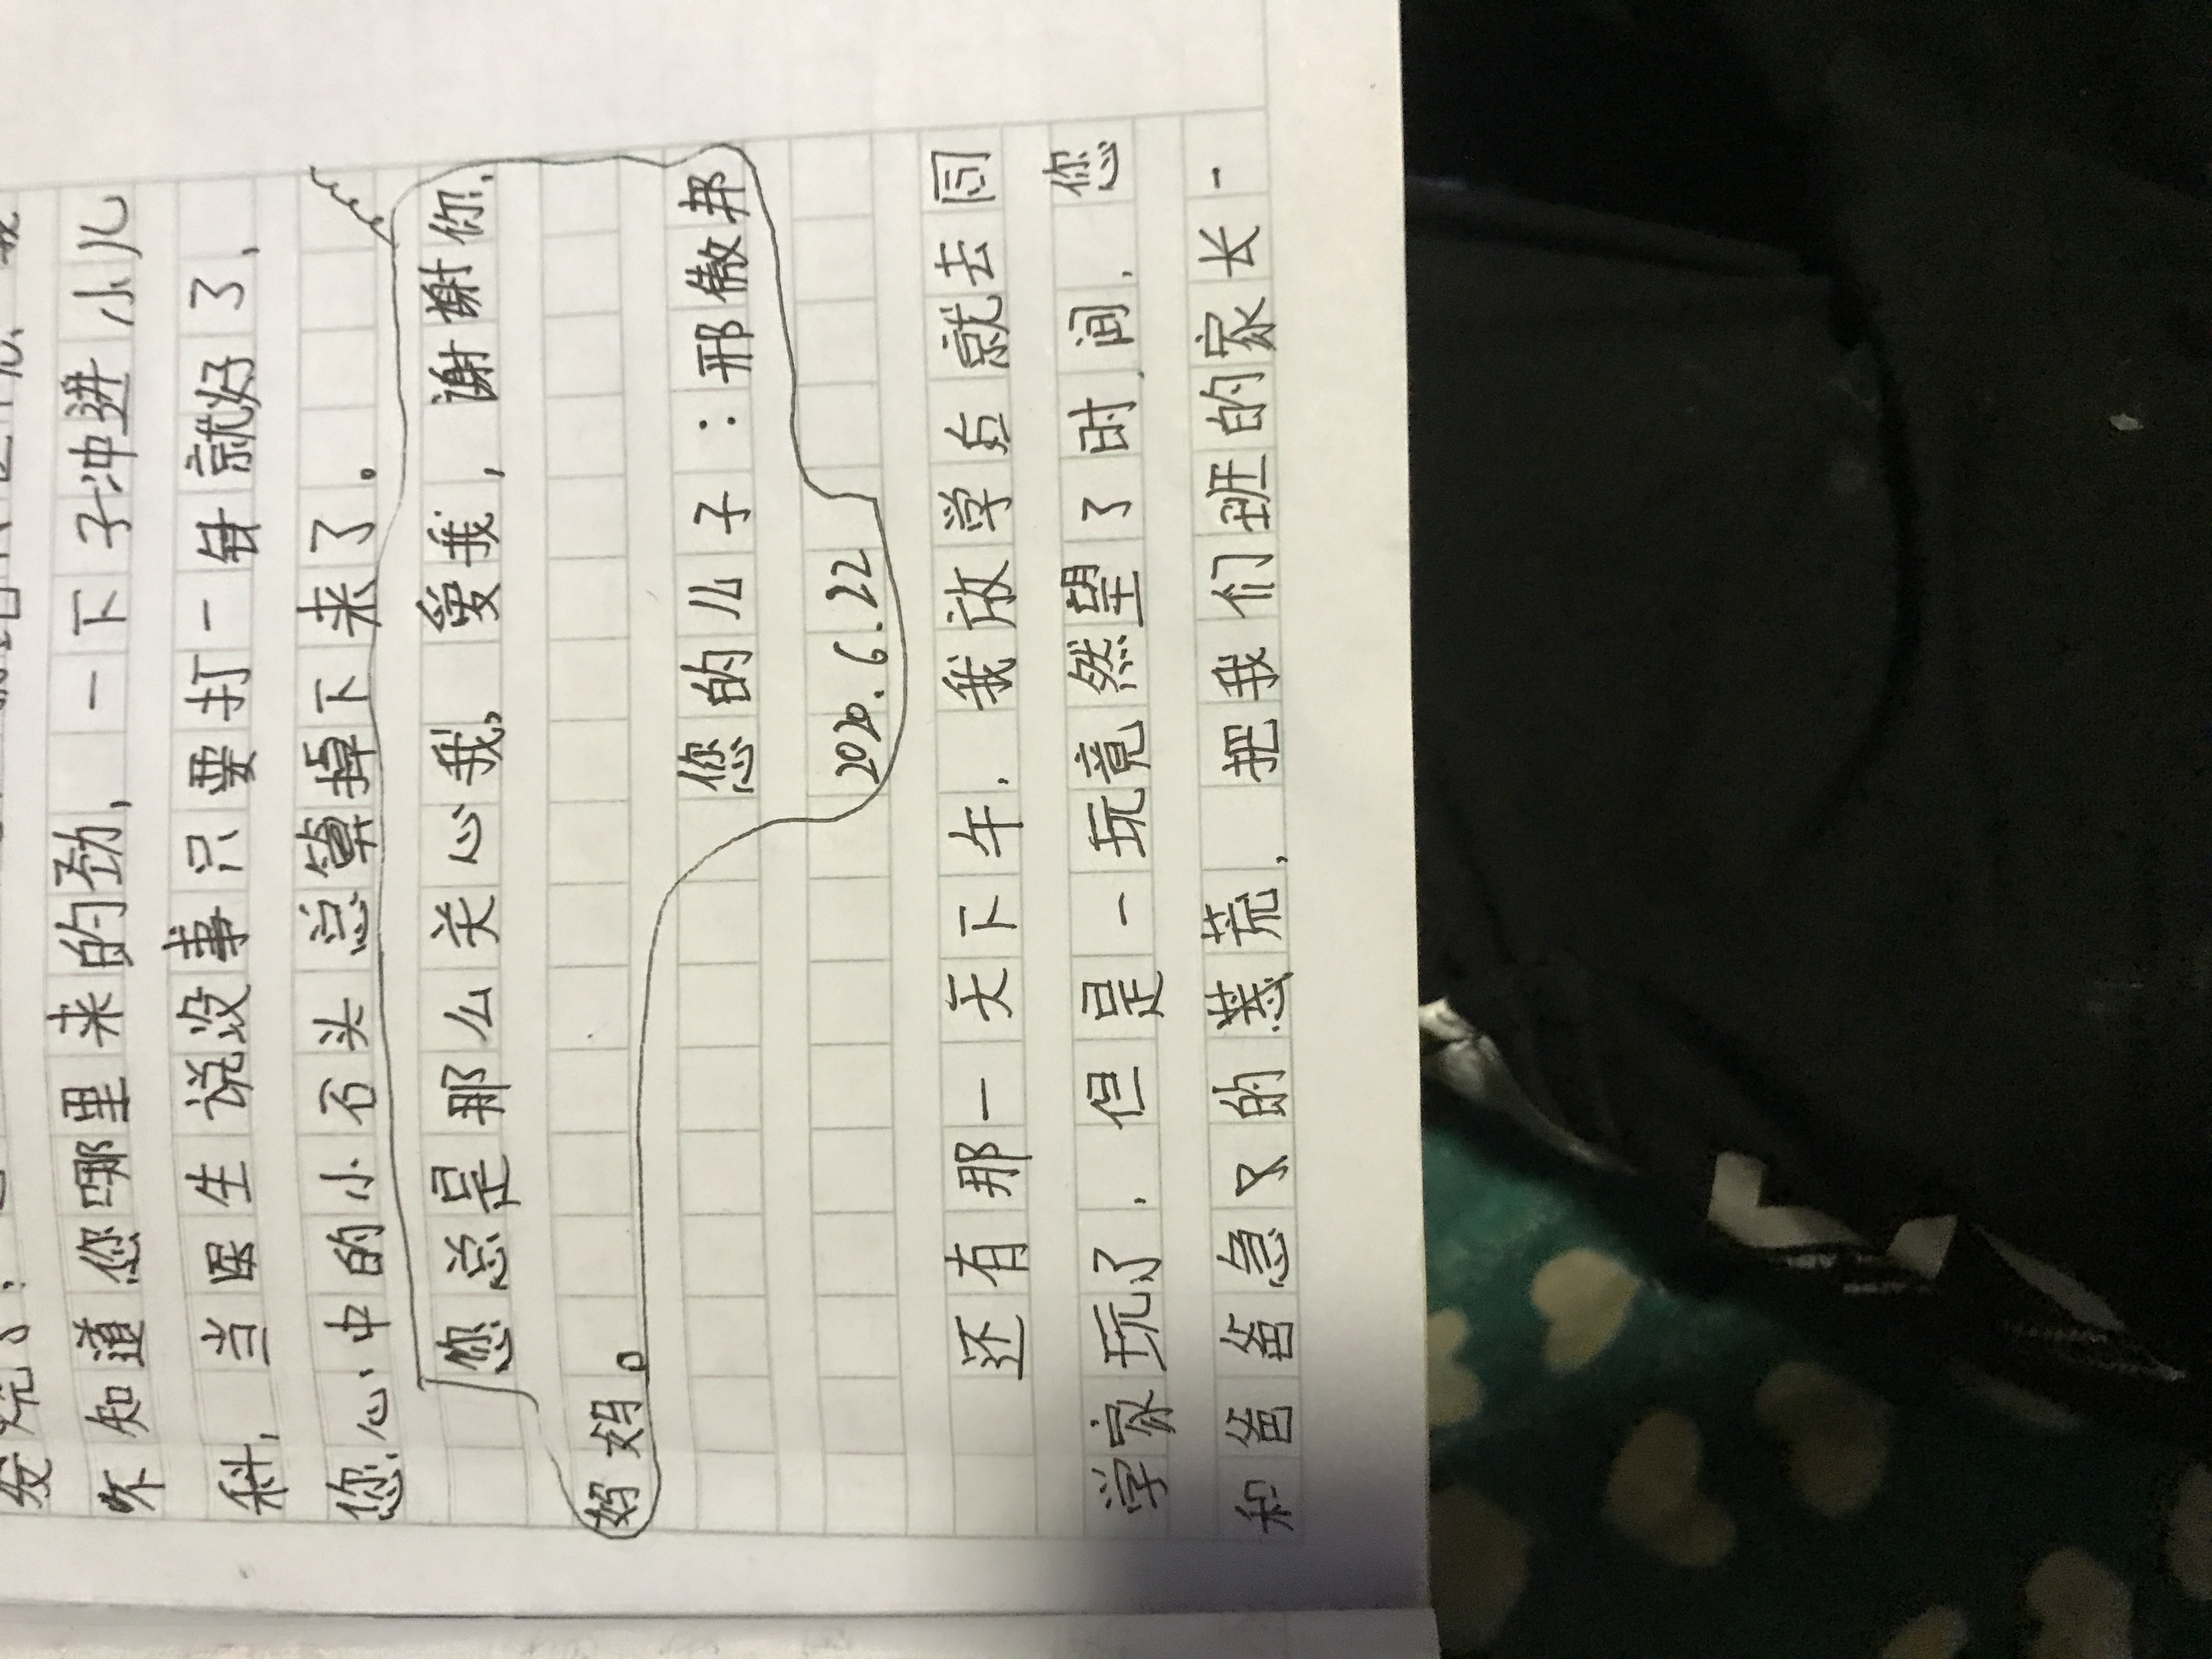 发烧了
不知道您哪里来的劲，一下子冲进小儿
科，当医生说没事只要打一针就好了，
您心中的小石头总算掉下来了。
您总是那么关心我，爱我，谢谢你，
妈妈。
您的儿子：邢傲邦
2020.6.22
还有那一天下午，我放学后就去同
学家玩了，但是一玩竟然望了时间，您
和爸爸急又的慈荒，把我们班的家长一